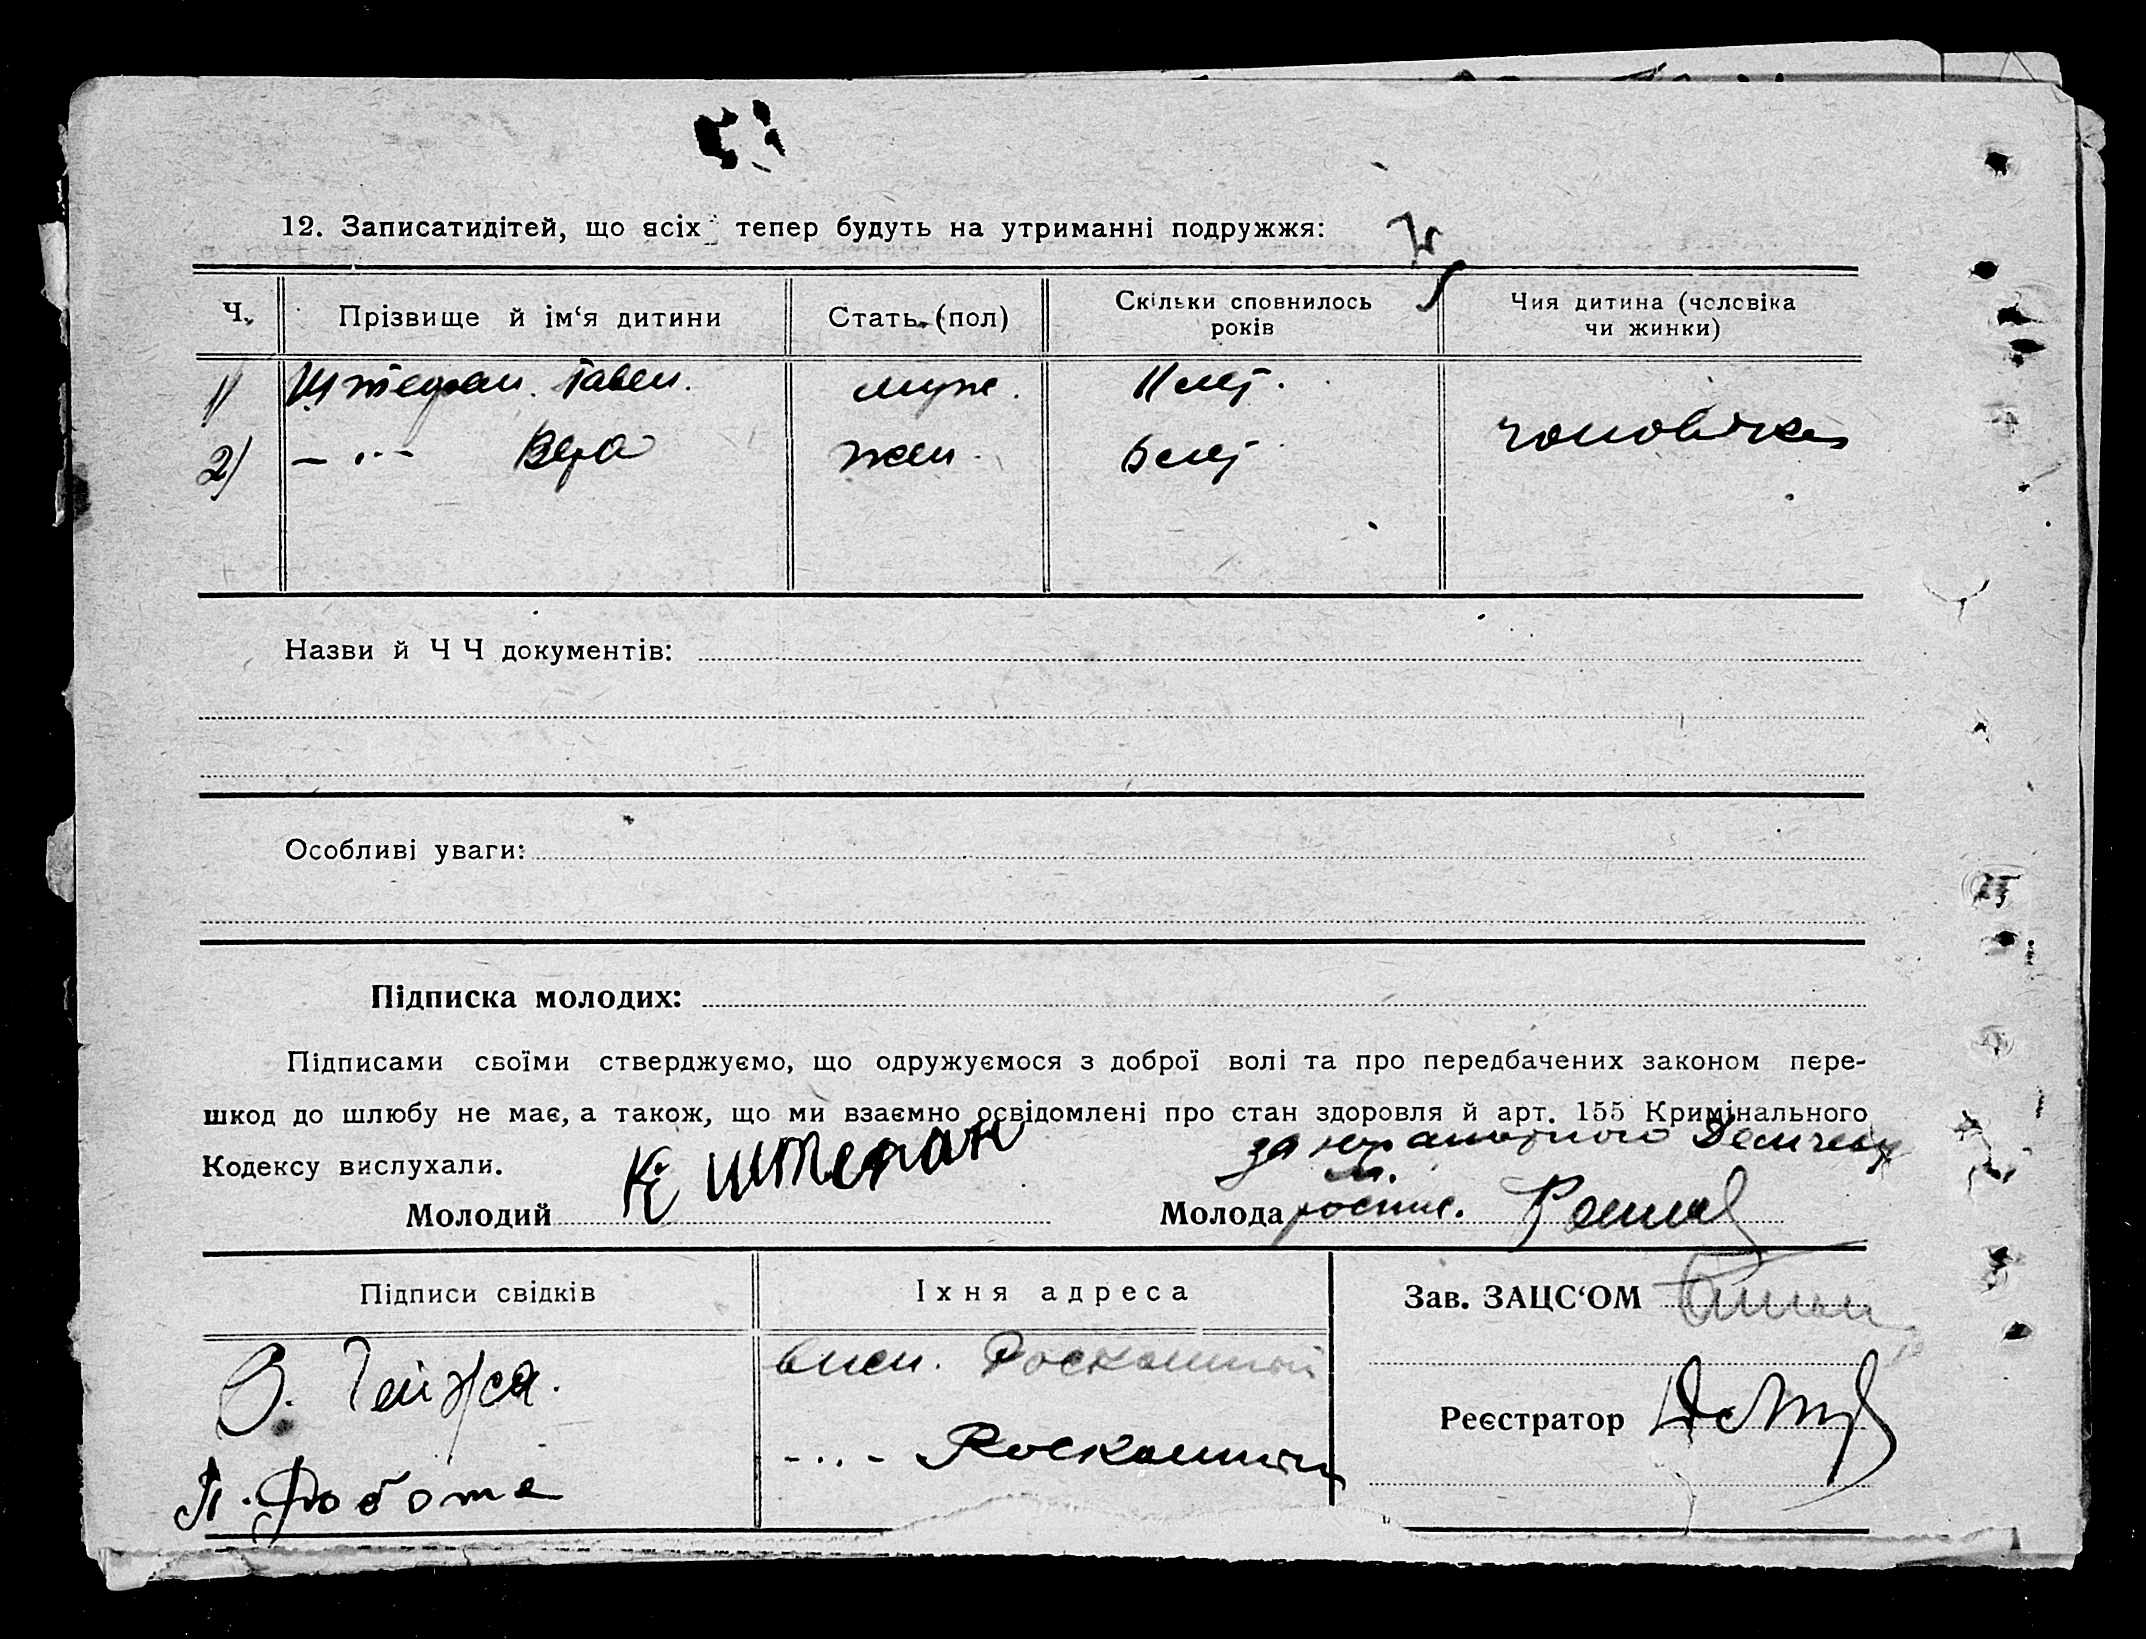 12. Записатидітей, що всіх тепер будуть на утриманні подружжя:
Ч. Прізвище й ім‘я дитини Стать (пол) Скільки сповнилось років Чия дитина (чоловіка чи жинки)
1) Штефан Павел. муж. 11 лет.
2) — " — Вера жен. 5 лет чоловіка
Назви й Ч Ч документів:
Особливі уваги:
Підписка молодих:
Підписами своїми стверджуємо, що одружуємося з доброї волі та про передбачених законом пере-
шкод до шлюбу не має, а також, що ми взаємно освідомлені про стан здоровля й арт. 155 Кримінального
Кодексу вислухали.
за неграмотного
Молодий К Штефан Молода роспис.
Підписи свідків Іхня адреса Зав. ЗАЦС‘ОМ
В. 
П. Робота — " — Роскошний
Реєстратор